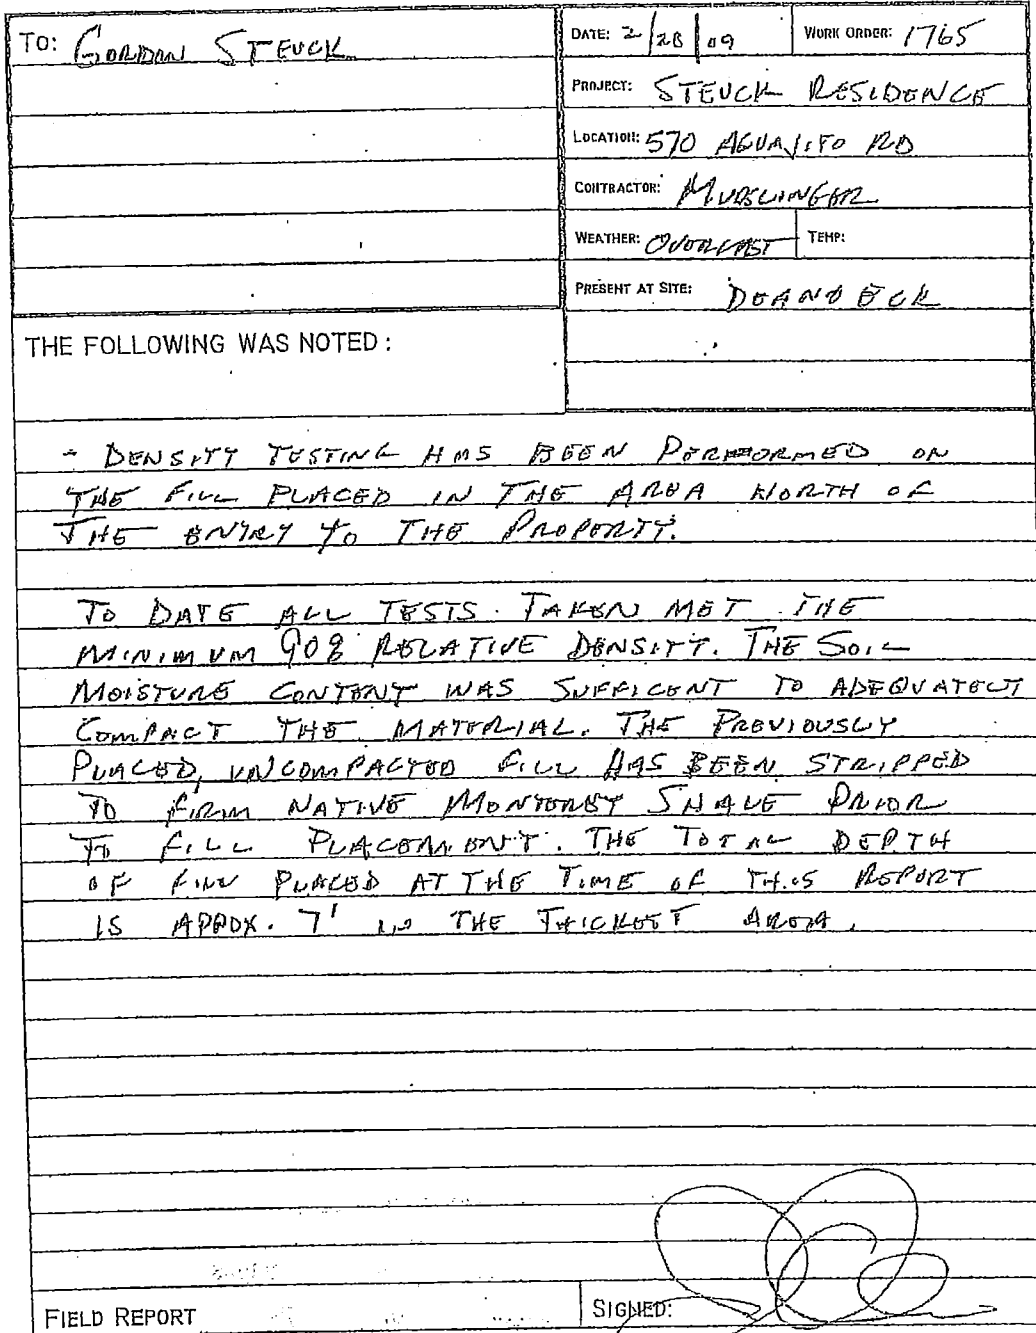 TO: GORDON STEUCK
DATE: 2/28/09
WORK ORDER: 1765
PROJECT: STEUCK RESIDENCE
LOCATION: 570 AGUAJITO RD
CONTRACTOR: MUDSLINGER
WEATHER: OVERCAST
TEMP:
PRESENT AT SITE: DEANE ECK
THE FOLLOWING WAS NOTED:
- DENSITY TESTING HAS BEEN PERFORMED ON
THE FILL PLACED IN THE AREA NORTH OF
THE ENTRY TO THE PROPERTY.
TO DATE ALL TESTS TAKEN MET THE
MINIMUM 90% RELATIVE DENSITY. THE SOIL
MOISTURE CONTENT WAS SUFFICENT TO ADEQUATELY
COMPACT THE MATERIAL. THE PREVIOUSLY
PLACED, UNCOMPACTED FILL HAS BEEN STRIPPED
TO FIRM NATIVE MONTEREY SHALE PRIOR
TO FILL PLACEMENT. THE TOTAL DEPTH
OF FILL PLACED AT THE TIME OF THIS REPORT
IS APPOX. 7' IN THE THICKEST AREA.
FIELD REPORT
SIGNED: